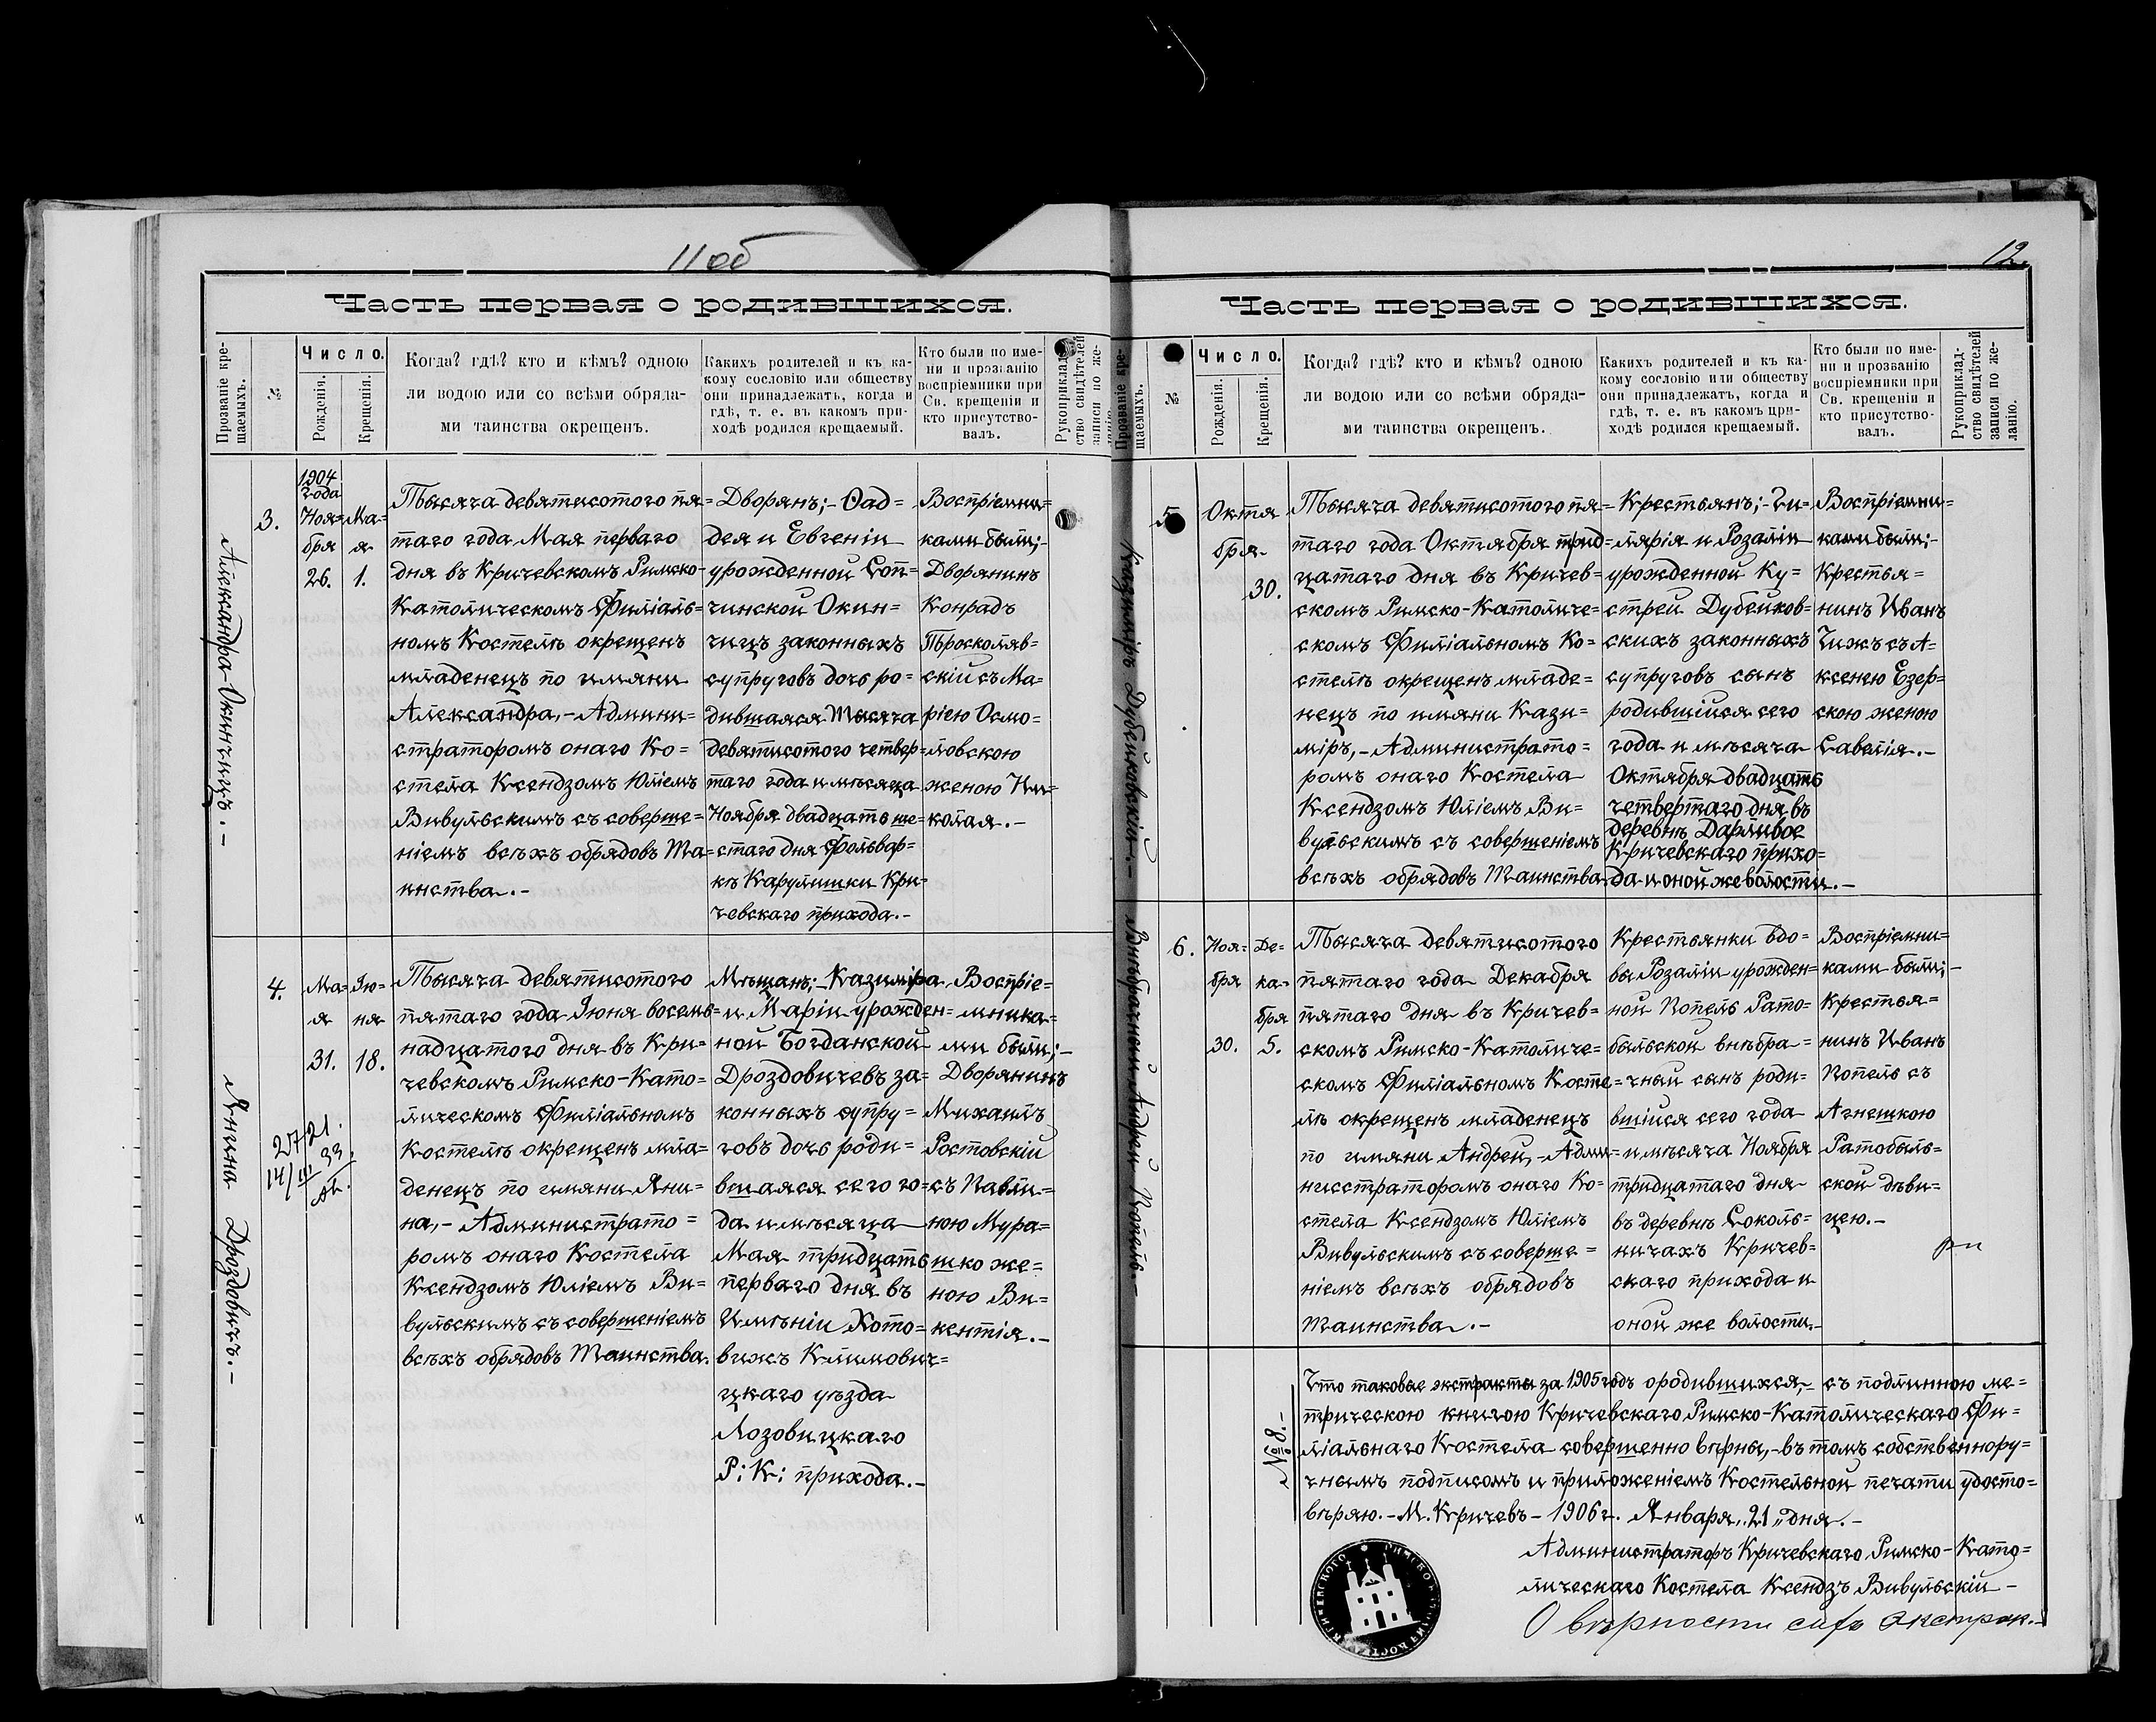 11 об
Часть первая о родившихся.
Прозваніе кре-
щаемыхъ.
№
Число.
Рожденія.
Крещенія.
Когда? гдѣ? кто и кѣмъ? одною
ли водою или со всѣми обряда-
ми таинства окрещенъ.
Какихъ родителей и къ ка-
кому сословію или обществу
они принадлежатъ, когда и
гдѣ, т. е. въ какомъ при-
ходѣ родился крещаемый.
Кто были по име-
ни и прозванію
воспріемники при
Св. крещеніи и
кто присутство-
валъ.
Рукоприклад-
ство свидѣтелей
записи по же-
ланію.
Александра Окинчицъ.-
3.
1904
года
Ноя=
бря
26.
Ма=
я
1.
Тысяча девятисотого пя=
таго года Мая перваго
дня въ Кричевскомъ Римско-
Католическомъ Филіаль=
номъ Костелѣ окрещенъ
младенецъ по имяни
Александра,- Админи=
страторомъ онаго Ко=
стела Ксендзомъ Юліемъ
Вивульскимъ съ соверше=
ніемъ всѣхъ обрядовъ Та=
инства.-
Дворянъ;- Ѳад=
дея и Евгеніи
урожденной Соп=
чинской Окин=
чицъ законныхъ
супруговъ дочь ро=
дившаяся тысяча
девятисотого четвер=
таго года и мѣсяца
Ноября двадцать ше=
стаго дня Фольвар=
кѣ Карулишки Кри=
чевскаго прихода.-
Воспріемни=
ками были;-
Дворянинъ
Конрадъ
Просколяв=
скій съ Ма=
ріею Осмо=
ловскою
женою Ни=
колая.-
Янина Дроздовичъ.-
4.
Ма=
я
31.
Ію=
ня
18.
2721.
14/III 33.
Тысяча девятисотого
пятаго года Іюня восемь=
надцатого дня въ Кри=
чевскомъ Римско-Като=
лическомъ Филіальномъ
Костелѣ окрещенъ мла=
денецъ по имяни Яни=
на,- Администрато=
ромъ онаго Костела
Ксендзомъ Юліемъ Ви=
вульскимъ съ совершеніемъ
всѣхъ обрядовъ Таинства.
Мѣщанъ;- Казиміра
и Маріи урожден=
ной Богданской
Дроздовичевъ за=
конныхъ супру=
говъ дочь роди=
вшаяся сего го=
да и мѣсяца
Мая тридцать
перваго дня въ
Имѣніи Хото=
вижъ Климович=
цкаго уѣзда
Лозовицкаго
Р: К: прихода.-
Воспріе=
мника=
ми были;-
Дворянинъ
Михаилъ
Ростовскій
съ Павли=
ною Мура=
шко же=
ною Ви=
кентія.-
12.
Часть первая о родившихся.
Прозваніе кре-
щаемыхъ.
№
Число.
Рожденія.
Крещенія.
Когда? гдѣ? кто и кѣмъ? одною
ли водою или со всѣми обряда-
ми таинства окрещенъ.
Какихъ родителей и къ ка-
кому сословію или обществу
они принадлежатъ, когда и
гдѣ, т. е. въ какомъ при-
ходѣ родился крещаемый.
Кто были по име-
ни и прозванію
воспріемники при
Св. крещеніи и
кто присутство-
валъ.
Рукоприклад-
ство свидѣтелей
записи по же-
ланію.
Казиміръ Дубейковскій.-
5
Октя
бря
30.
Тысяча девятисотого пя=
таго года Октября трид=
цатаго дня въ Кричев=
скомъ Римско-Католиче=
скомъ Филіальномъ Ко=
стелѣ окрещенъ младе=
нецъ по имяни Кази=
міръ,- Администрато=
ромъ онаго Костела
Ксендзомъ Юліемъ Ви=
вульскимъ съ совершеніемъ
всѣхъ обрядовъ Таинства
Крестьянъ;- Ги=
лярія и Розаліи
урожденной Ку=
стрей Дубейков=
скихъ законныхъ
супруговъ сынъ
родившійся сего
года и мѣсяча
Октября двадцать
четвертаго дня въ
деревнѣ Дарливое
Кричевскаго прихо=
да и оной же волости.-
Воспріемни=
ками были;-
Крестья=
нинъ Иванъ
Чижъ съ А=
ксенею Езер=
скою женою
Савелія.-
Внѣбрачный Андрей Копель.-
6.
Ноя=
бря
30.
Де=
ка=
бря
5.
Тысяча девятисотого
пятаго года Декабря
пятаго дня въ Кричев=
скомъ Римско-Католиче=
скомъ Филіальномъ Косте=
лѣ окрещенъ младенецъ
по имяни Андрей,- Адми=
нисстраторомъ онаго Ко=
стела Ксендзомъ Юліемъ
Вивульскимъ съ соверше=
ніемъ всѣхъ обрядовъ
Таинства.-
Крестьянки вдо=
вы Розаліи урожден=
ной Копель Рато=
быльской внѣбра=
чный сынъ роди=
вшійся сего года
и мѣсяча Ноября
тридцатаго дня
въ деревнѣ Соколь=
ничахъ Кричев=
скаго прихода и
оной же волости.-
Воспріемни=
ками были;-
Крестья=
нинъ Иванъ
Копель съ
Агнешкою
Ратобыль=
ской дѣви=
цею.-
№ 8.-
Что таковые экстракты за 1905 годъ о родившихся,- съ подлинною ме=
трическою книгою Кричевскаго Римско-Католическаго Фи=
ліальнаго Костела совершенно вѣрны,- въ томъ собственнору=
чнымъ подписомъ и приложеніемъ Костельной печати удосто=
вѣряю.- М. Кричевъ - 1906 г. Января „21" дня.-
Администраторъ Кричевскаго Римско-Като=
лическаго Костела Ксендзъ Вивульскій -
О вѣрности сихъ экстрак.-